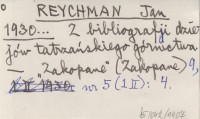 REYCHMAN Jan
1930... Z bibliografji dzie-
jów tatrzańskiego górnictwa
— "Zakopane" (Zakopane) 9,
nr 5 (1 II): 4.